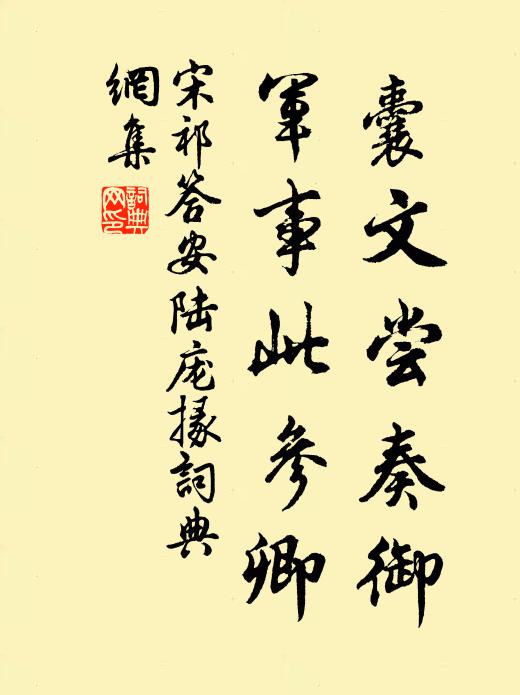 囊文尝奏御
军事此参卿
宋祁答安陆庞掾詞典
網集
詞典網印